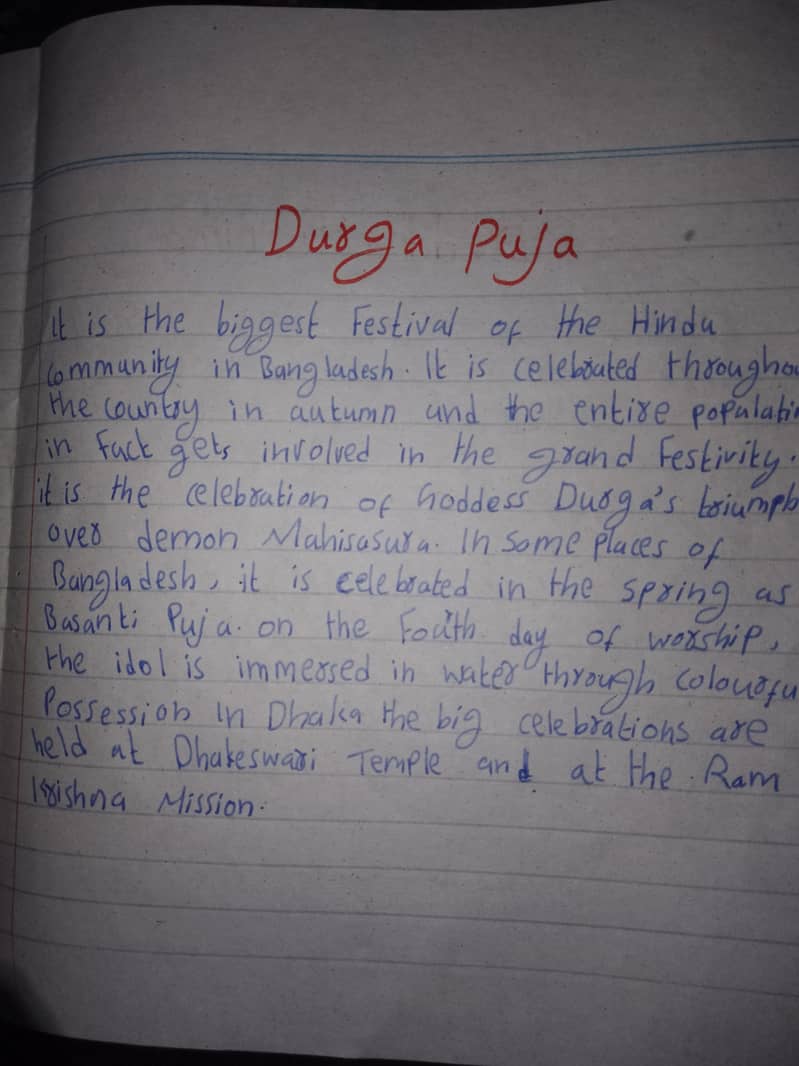 Durga Puja
It is the biggest Festival of the Hindu
Community in Bangladesh. It is celebrated throughou
the country in autumn and the entire populatio
in Fact gets involved in the grand Festivity.
it is the celebration of Goddess Durga's triumph
over demon Mahisasura. In Some places of
Bangladesh, it is celebrated in the spring as
Basanti Puja. on the Fouth day of worship,
the idol is immersed in water through colourfu
Possession In Dhaka the big celebrations are
held at Dhakeswari Temple and at the Ram
Krishna Mission.